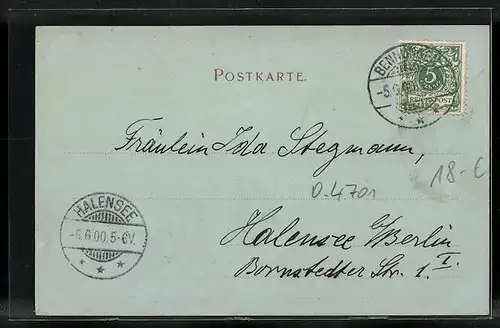 POSTKARTE.
5
REICHSPOST
-5.6.00
Fräulein Ida Stegmann,
18.- €
0-4701
HALENSEE
-6.6.00.5-6V.
Halensee b/Berlin
Bornstedter Str. 1. I.